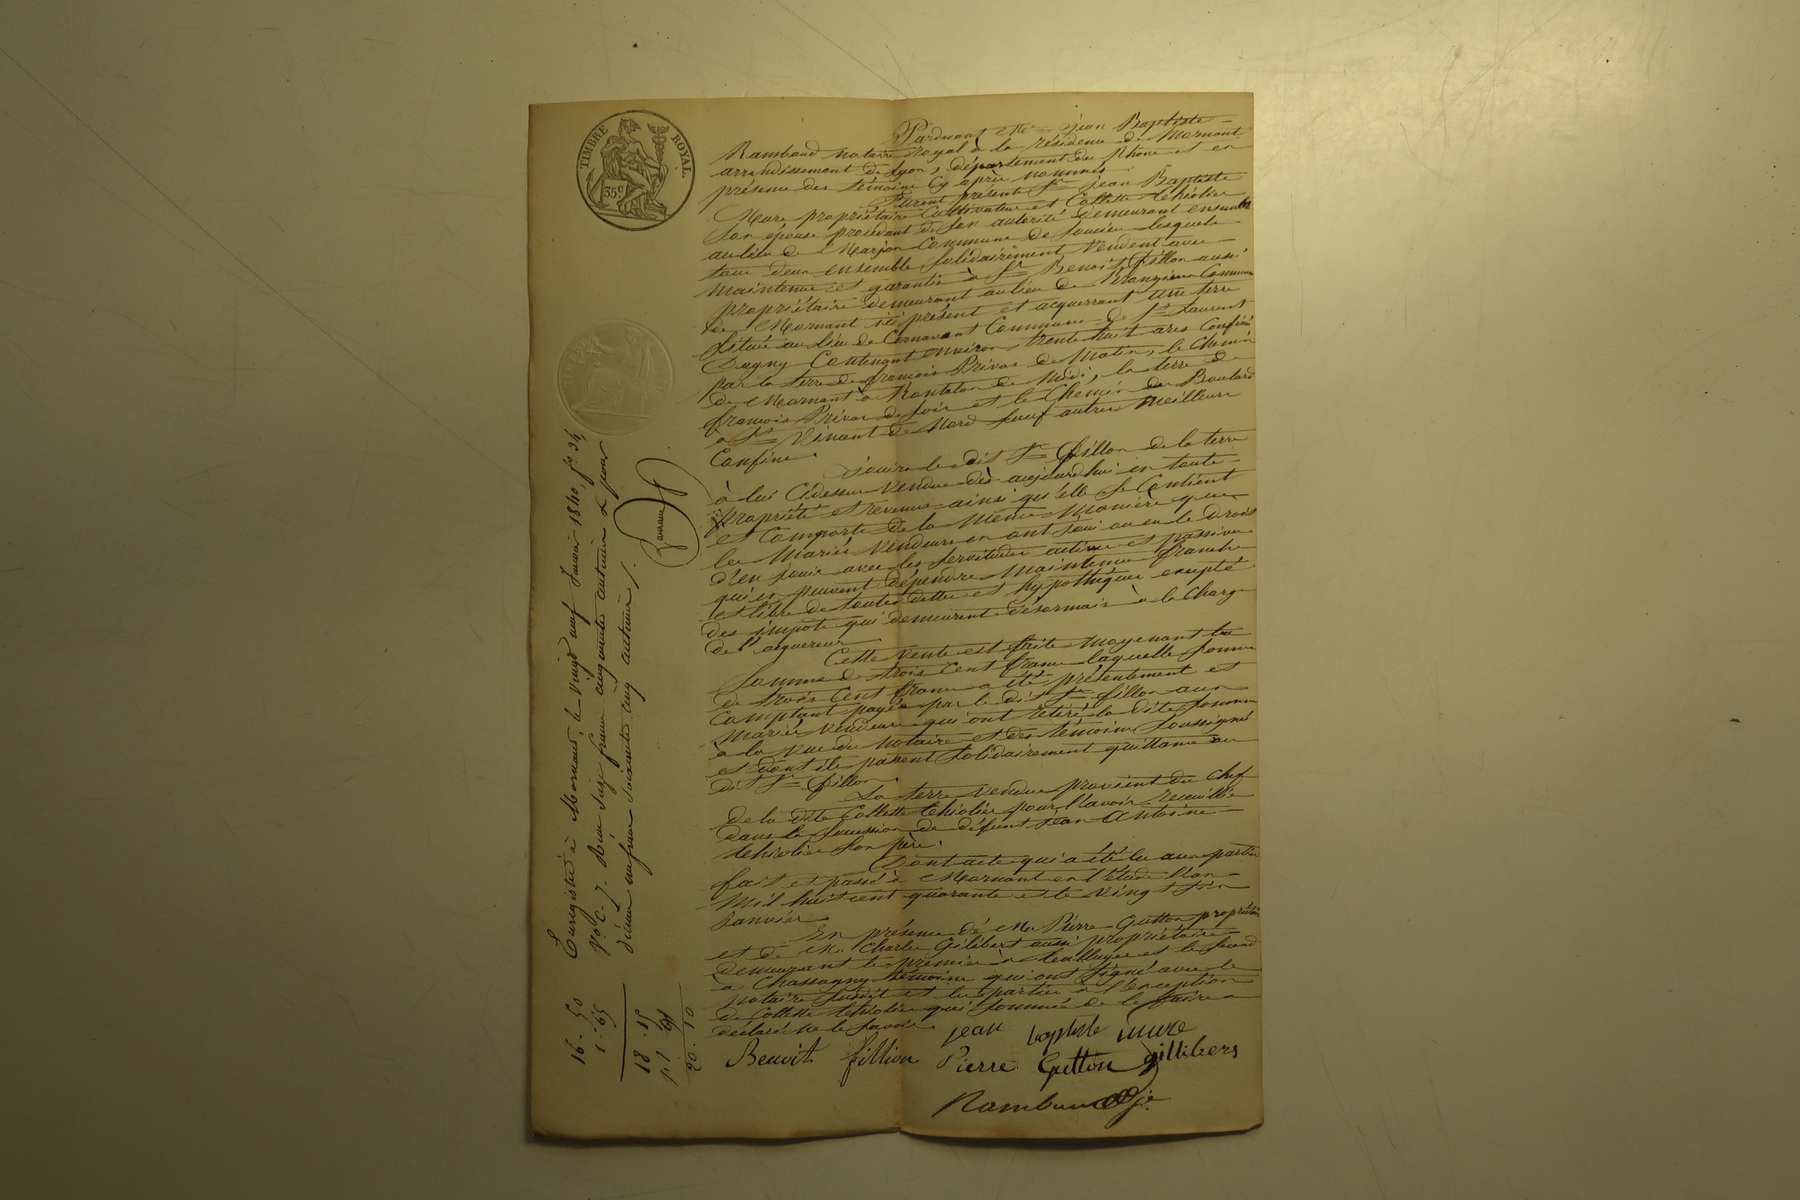 TIMBRE ROYAL
35 c.
Pardevant Me jean Baptiste
Rambaud notaire Royal à la résidence de Mornant
arrondissement de Lyon, département du Rhône et en
présence des témoins cy après nommés
Furent présent Sr jean Baptiste
Mure propriétaire Cultivateur et Collette thiolier
Son épouse procédant de son autorité demeurant ensemble
au lieu de Marjon Commune de Soucieu lesquels
tous deux ensemble solidairement vendent avec
maintenue et garantie à Sr Benoit fillon aussi
propriétaire demeurant au lieu de Commune
de Mornant ici présent et acquerrant Une terre
Située au lieu de Cornavant Commune de St Laurent
Dagny Contenant environ trente huit ares Confiné
par la terre de françois Privas de Matin, le Chemin
de Mornant à Rontalon de Midi, la terre de
françois Privas de soir et le Chemin du Boulard
à St Vincent de Nord sauf autres meilleurs
Confins.
Jouira le dit Sr fillon de la terre
à lui Cidessus vendue dès aujourd'hui en toute
propriété et revenus ainsi qu'elle se Contient
et Comporte de la Même Manière que
les Mariés Vendeurs en ont joui ou eu le droit
d'en jouir avec les servitudes actives et passives
qui en peuvent dépendre Maintenue franche
et libre de toutes dettes et hypothèques excepté
des impôts qui demeurent désormais à la charge
de l'acquéreur
Cette vente est faite moyenant la
Somme de trois Cent francs laquelle somme
de trois Cent francs a été présentement et
Comptant payée par le dit Sr fillon aux
Mariés Vendeurs qui ont retiré la dite somme
à la vue du Notaire et des témoins Soussignés
et dont ils passent solidairement quittance au
dit Sr fillon.
La terre vendue provient du chef
de la dite Collette thiolier pour l'avoir recueillie
dans la succession de défunt jean Antoine
thiolier son père.
Dont acte qui a été lu aux parties
fait et passé à Mornant en l'étude l'an
Mil huit cent quarante et le vingt six
janvier
En présence de Mr Pierre Guitton propriétaire
et de Mr Charles Gilibert aussi propriétaire
demeurant le premier à et le second
à Chassagny témoins qui ont signé avec le
Notaire susdit et les parties à l'exception
de Collette thiolier qui sommée de le faire a
déclaré ne le savoir.
jean baptiste mure
Benoit fillion Pierre Guitton gillibers
Rambaud
Enregistré à Mornant, le vingt neuf Janvier 1840, fo 34,
Vo C. 7. Reçu seize francs cinquante centimes & pour
décime un franc soixante cinq centimes /.
16 . 50
1 . 65
18 . 15
1 . 95
20 . 10